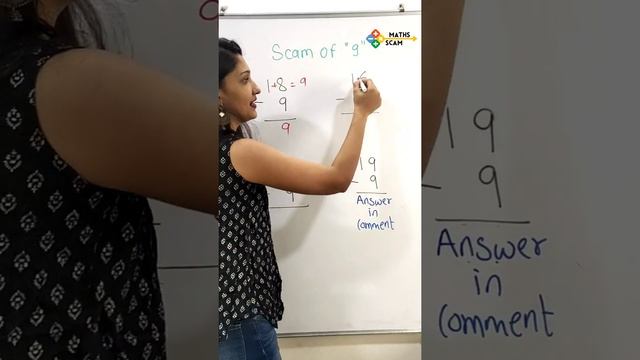 MATHS
SCAM
Scam of "9"
1+8=9
- 9
9
1
9
19
- 9
Answer
in
Comment
9
19
- 9
Answer
in
Comment